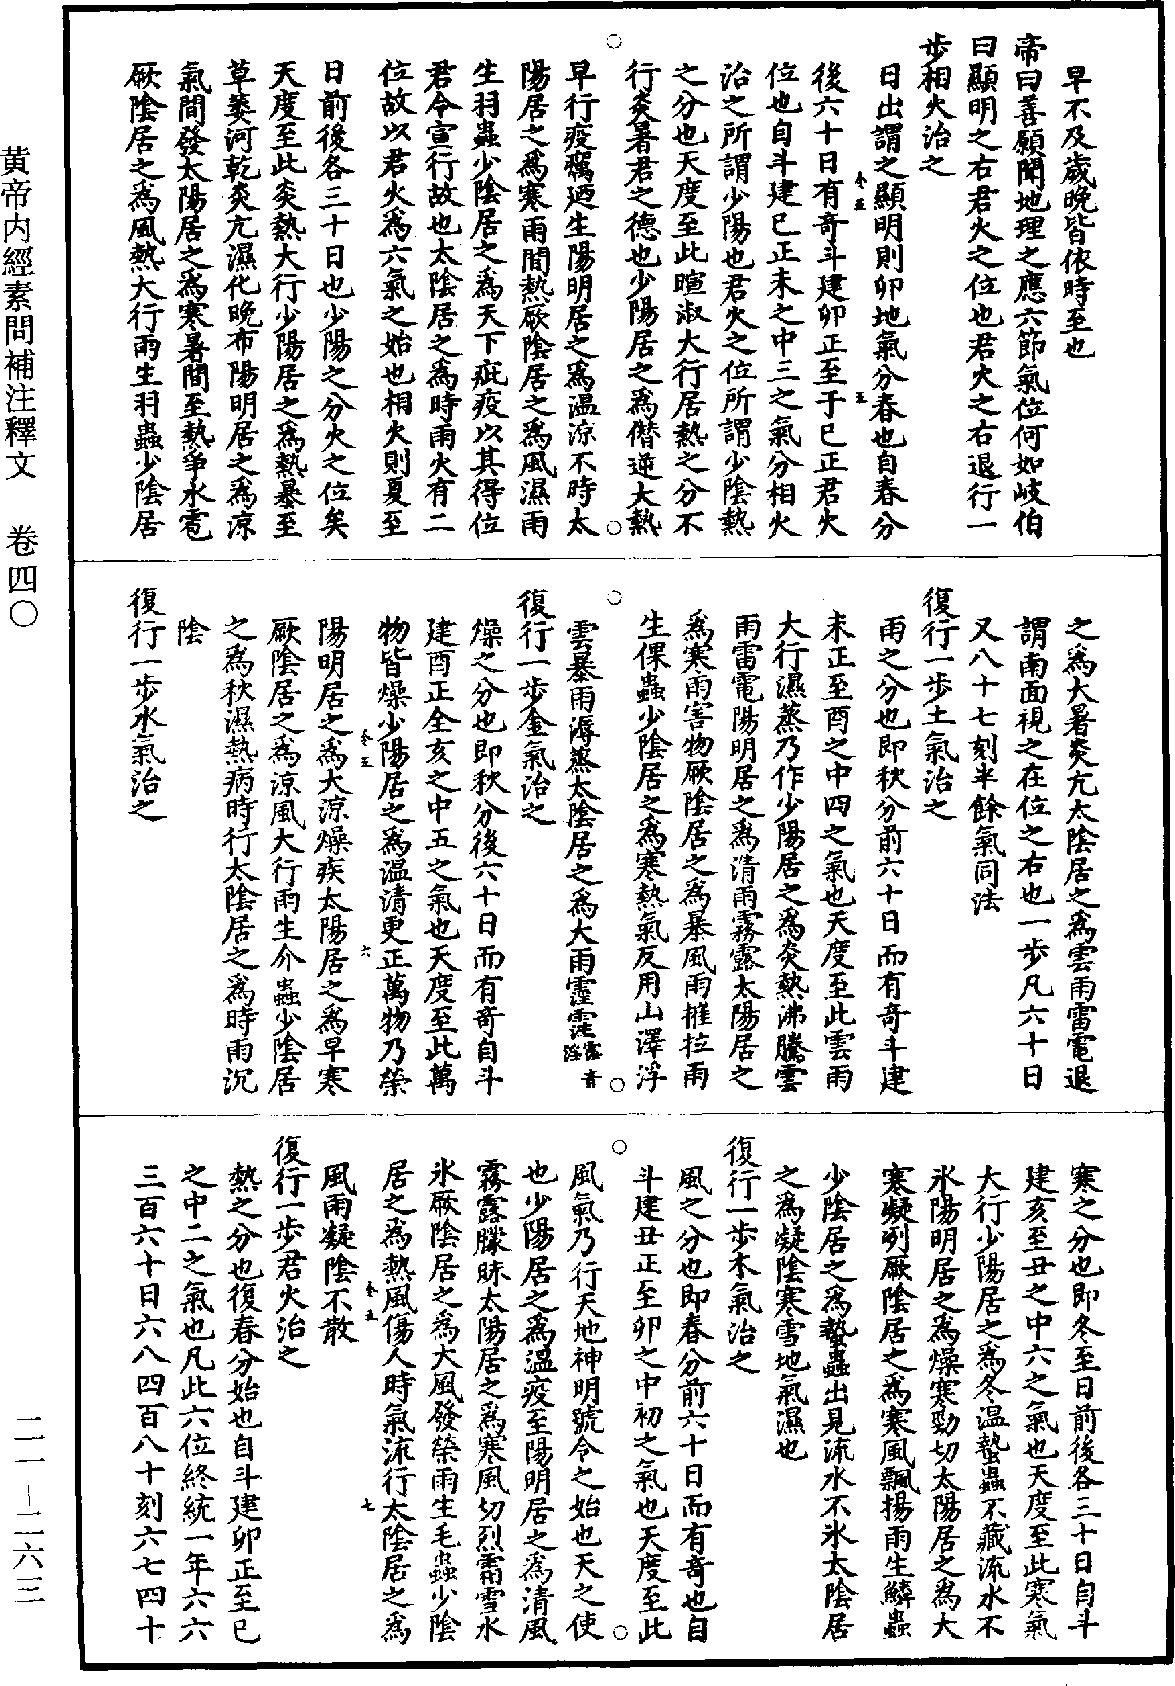 早不及歲晚皆依時至也
帝曰善願聞地理之應六節氣位何如岐伯
曰顯明之右君火之位也君火之右退行一
步相火治之
日出謂之顯明則卯地氣分春也自春分
後六十日有奇斗建卯正至于巳正君火
位也自斗建巳正未之中三之氣分相火
治之所謂少陽也君火之位所謂少陰熱
之分也天度至此暄淑大行居熱之分不
行炎暑君之德也少陽居之為僭逆大熱
早行疫癘廼生陽明居之為温涼不時太
陽居之為寒雨間熱厥陰居之為風濕雨
生羽蟲少陰居之為天下疵疫以其得位
君令宣行故也太陰居之為時雨火有二
位故以君火為六氣之始也相火則夏至
日前後各三十日也少陽之分火之位矣
天度至此炎熱大行少陽居之為熱暴至
草萎河乾炎亢濕化晚布陽明居之為凉
氣間發太陽居之為寒暑間至熱争氷雹
厥陰居之為風熱大行雨生羽蟲少陰居
之為大暑炎亢太陰居之為雲雨雷電退
謂南面視之在位之右也一步凡六十日
又八十七刻半餘氣同法
復行一步土氣治之
雨之分也即秋分前六十日而有奇斗建
未正至酉之中四之氣也天度至此雲雨
大行濕蒸乃作少陽居之為炎熱沸騰雲
雨雷電陽明居之為清雨霧露太陽居之
為寒雨害物厥陰居之為暴風雨摧拉雨
生倮蟲少陰居之為寒熱氣反用山澤浮
雲暴雨溽蒸太陰居之為大雨霪霔霪音淫
復行一步金氣治之
燥之分也即秋分後六十日而有奇自斗
建酉正全亥之中五之氣也天度至此萬
物皆燥少陽居之為温清更正萬物乃榮
陽明居之為大凉燥疾太陽居之為早寒
厥陰居之為凉風大行雨生介蟲少陰居
之為秋濕熱病時行太陰居之為時雨沉
陰
復行一步水氣治之
寒之分也即冬至日前後各三十日自斗
建亥至丑之中六之氣也天度至此寒氣
大行少陽居之為冬温蟄蟲不藏流水不
氷陽明居之為燥寒勁切太陽居之為大
寒凝冽厥陰居之為寒風飄揚雨生鱗蟲
少陰居之為蟄蟲出見流水不氷太陰居
之為凝陰寒雪地氣濕也
復行一步木氣治之
風之分也即春分前六十日而有奇也自
斗建丑正至卯之中初之氣也天度至此
風氣乃行天地神明號令之始也天之使
也少陽居之為温疫至陽明居之為清風
霧露朦昧太陽居之為寒風切烈霜雪水
氷厥陰居之為大風發榮雨生毛蟲少陰
居之為熱風傷人時氣流行太陰居之為
風雨凝陰不散
復行一步君火治之
熱之分也復春分始也自斗建卯正至巳
之中二之氣也凡此六位終統一年六六
三百六十日六八四百八十刻六七四十
黄帝内經素問補注釋文 卷四〇
二一—二六三